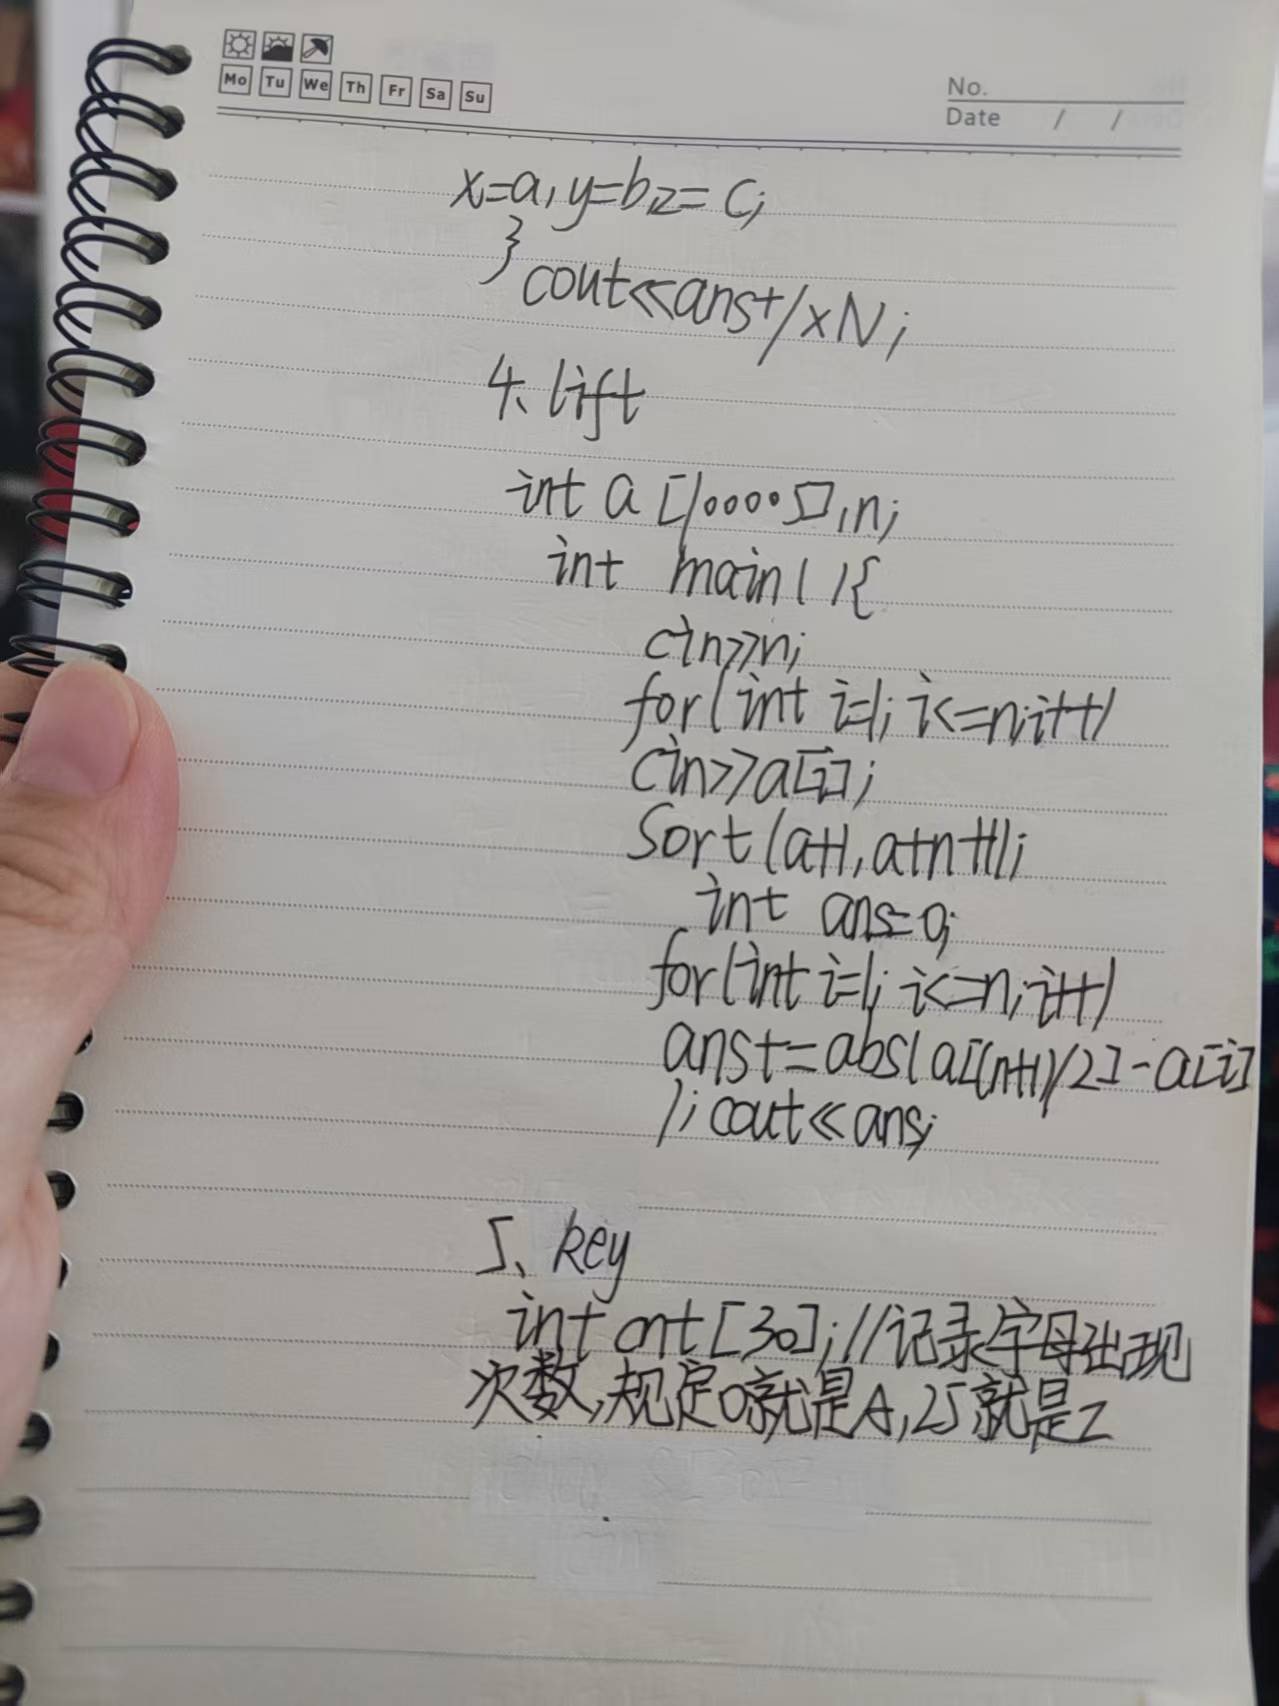 Mo Tu We Th Fr Sa Su
No.
Date / /
x=a,y=b,z=c;
}
cout<<ans+/xN;
4、lift
int a[100005],n;
int main(){
cin>>n;
for(int i=1;i<=n;i++)
cin>>a[i];
sort(a+1,a+n+1);
int ans=0;
for(int i=1;i<=n;i++)
ans+=abs(a[(n+1)/2]-a[i]
);cout<<ans;
5、key
int cnt[30];//记录字母出现
次数,规定0就是A,25就是Z